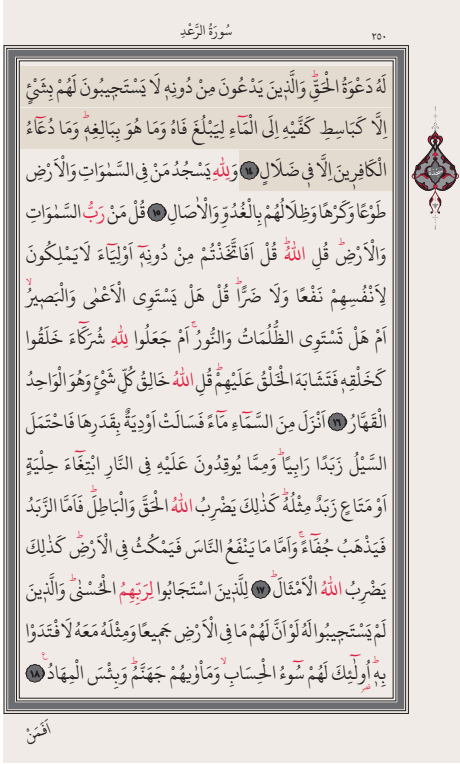 سُورَةُ الرَّعْدِ
٢٥٠
لَهُ دَعْوَةُ الْحَقِّۜ وَالَّذ۪ينَ يَدْعُونَ مِنْ دُونِه۪ لَا يَسْتَج۪يبُونَ لَهُمْ بِشَيْءٍ
اِلَّا كَبَاسِطِ كَفَّيْهِ اِلَى الْمَٓاءِ لِيَبْلُغَ فَاهُ وَمَا هُوَ بِبَالِغِه۪ۜ وَمَا دُعَٓاءُ
الْكَافِر۪ينَ اِلَّا ف۪ي ضَلَالٍ ١٤ وَلِلّٰهِ يَسْجُدُ مَنْ فِي السَّمٰوَاتِ وَالْاَرْضِ
طَوْعًا وَكَرْهًا وَظِلَالُهُمْ بِالْغُدُوِّ وَالْاٰصَالِ ١٥ قُلْ مَنْ رَبُّ السَّمٰوَاتِ
وَالْاَرْضِۜ قُلِ اللّٰهُۜ قُلْ اَفَاتَّخَذْتُمْ مِنْ دُونِه۪ٓ اَوْلِيَٓاءَ لَا يَمْلِكُونَ
لِاَنْفُسِهِمْ نَفْعًا وَلَا ضَرًّاۜ قُلْ هَلْ يَسْتَوِي الْاَعْمٰى وَالْبَص۪يرُۙ
اَمْ هَلْ تَسْتَوِي الظُّلُمَاتُ وَالنُّورُۚ اَمْ جَعَلُوا لِلّٰهِ شُرَكَٓاءَ خَلَقُوا
كَخَلْقِه۪ فَتَشَابَهَ الْخَلْقُ عَلَيْهِمْۜ قُلِ اللّٰهُ خَالِقُ كُلِّ شَيْءٍ وَهُوَ الْوَاحِدُ
الْقَهَّارُ ١٦ اَنْزَلَ مِنَ السَّمَٓاءِ مَٓاءً فَسَالَتْ اَوْدِيَةٌ بِقَدَرِهَا فَاحْتَمَلَ
السَّيْلُ زَبَدًا رَابِيًاۜ وَمِمَّا يُوقِدُونَ عَلَيْهِ فِي النَّارِ ابْتِغَٓاءَ حِلْيَةٍ
اَوْ مَتَاعٍ زَبَدٌ مِثْلُهُۜ كَذٰلِكَ يَضْرِبُ اللّٰهُ الْحَقَّ وَالْبَاطِلَۜ فَاَمَّا الزَّبَدُ
فَيَذْهَبُ جُفَٓاءًۚ وَاَمَّا مَا يَنْفَعُ النَّاسَ فَيَمْكُثُ فِي الْاَرْضِۜ كَذٰلِكَ
يَضْرِبُ اللّٰهُ الْاَمْثَالَۜ ١٧ لِلَّذ۪ينَ اسْتَجَابُوا لِرَبِّهِمُ الْحُسْنٰىۜ وَالَّذ۪ينَ
لَمْ يَسْتَج۪يبُوا لَهُ لَوْ اَنَّ لَهُمْ مَا فِي الْاَرْضِ جَم۪يعًا وَمِثْلَهُ مَعَهُ لَافْتَدَوْا
بِه۪ۜ اُو۬لٰٓئِكَ لَهُمْ سُٓوءُ الْحِسَابِۙ وَمَاْوٰيهُمْ جَهَنَّمُۜ وَبِئْسَ الْمِهَادُ۟ ١٨
اَفَمَنْ